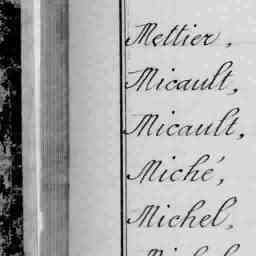 Mettier,
Micault,
Micault,
Miché,
Michel,